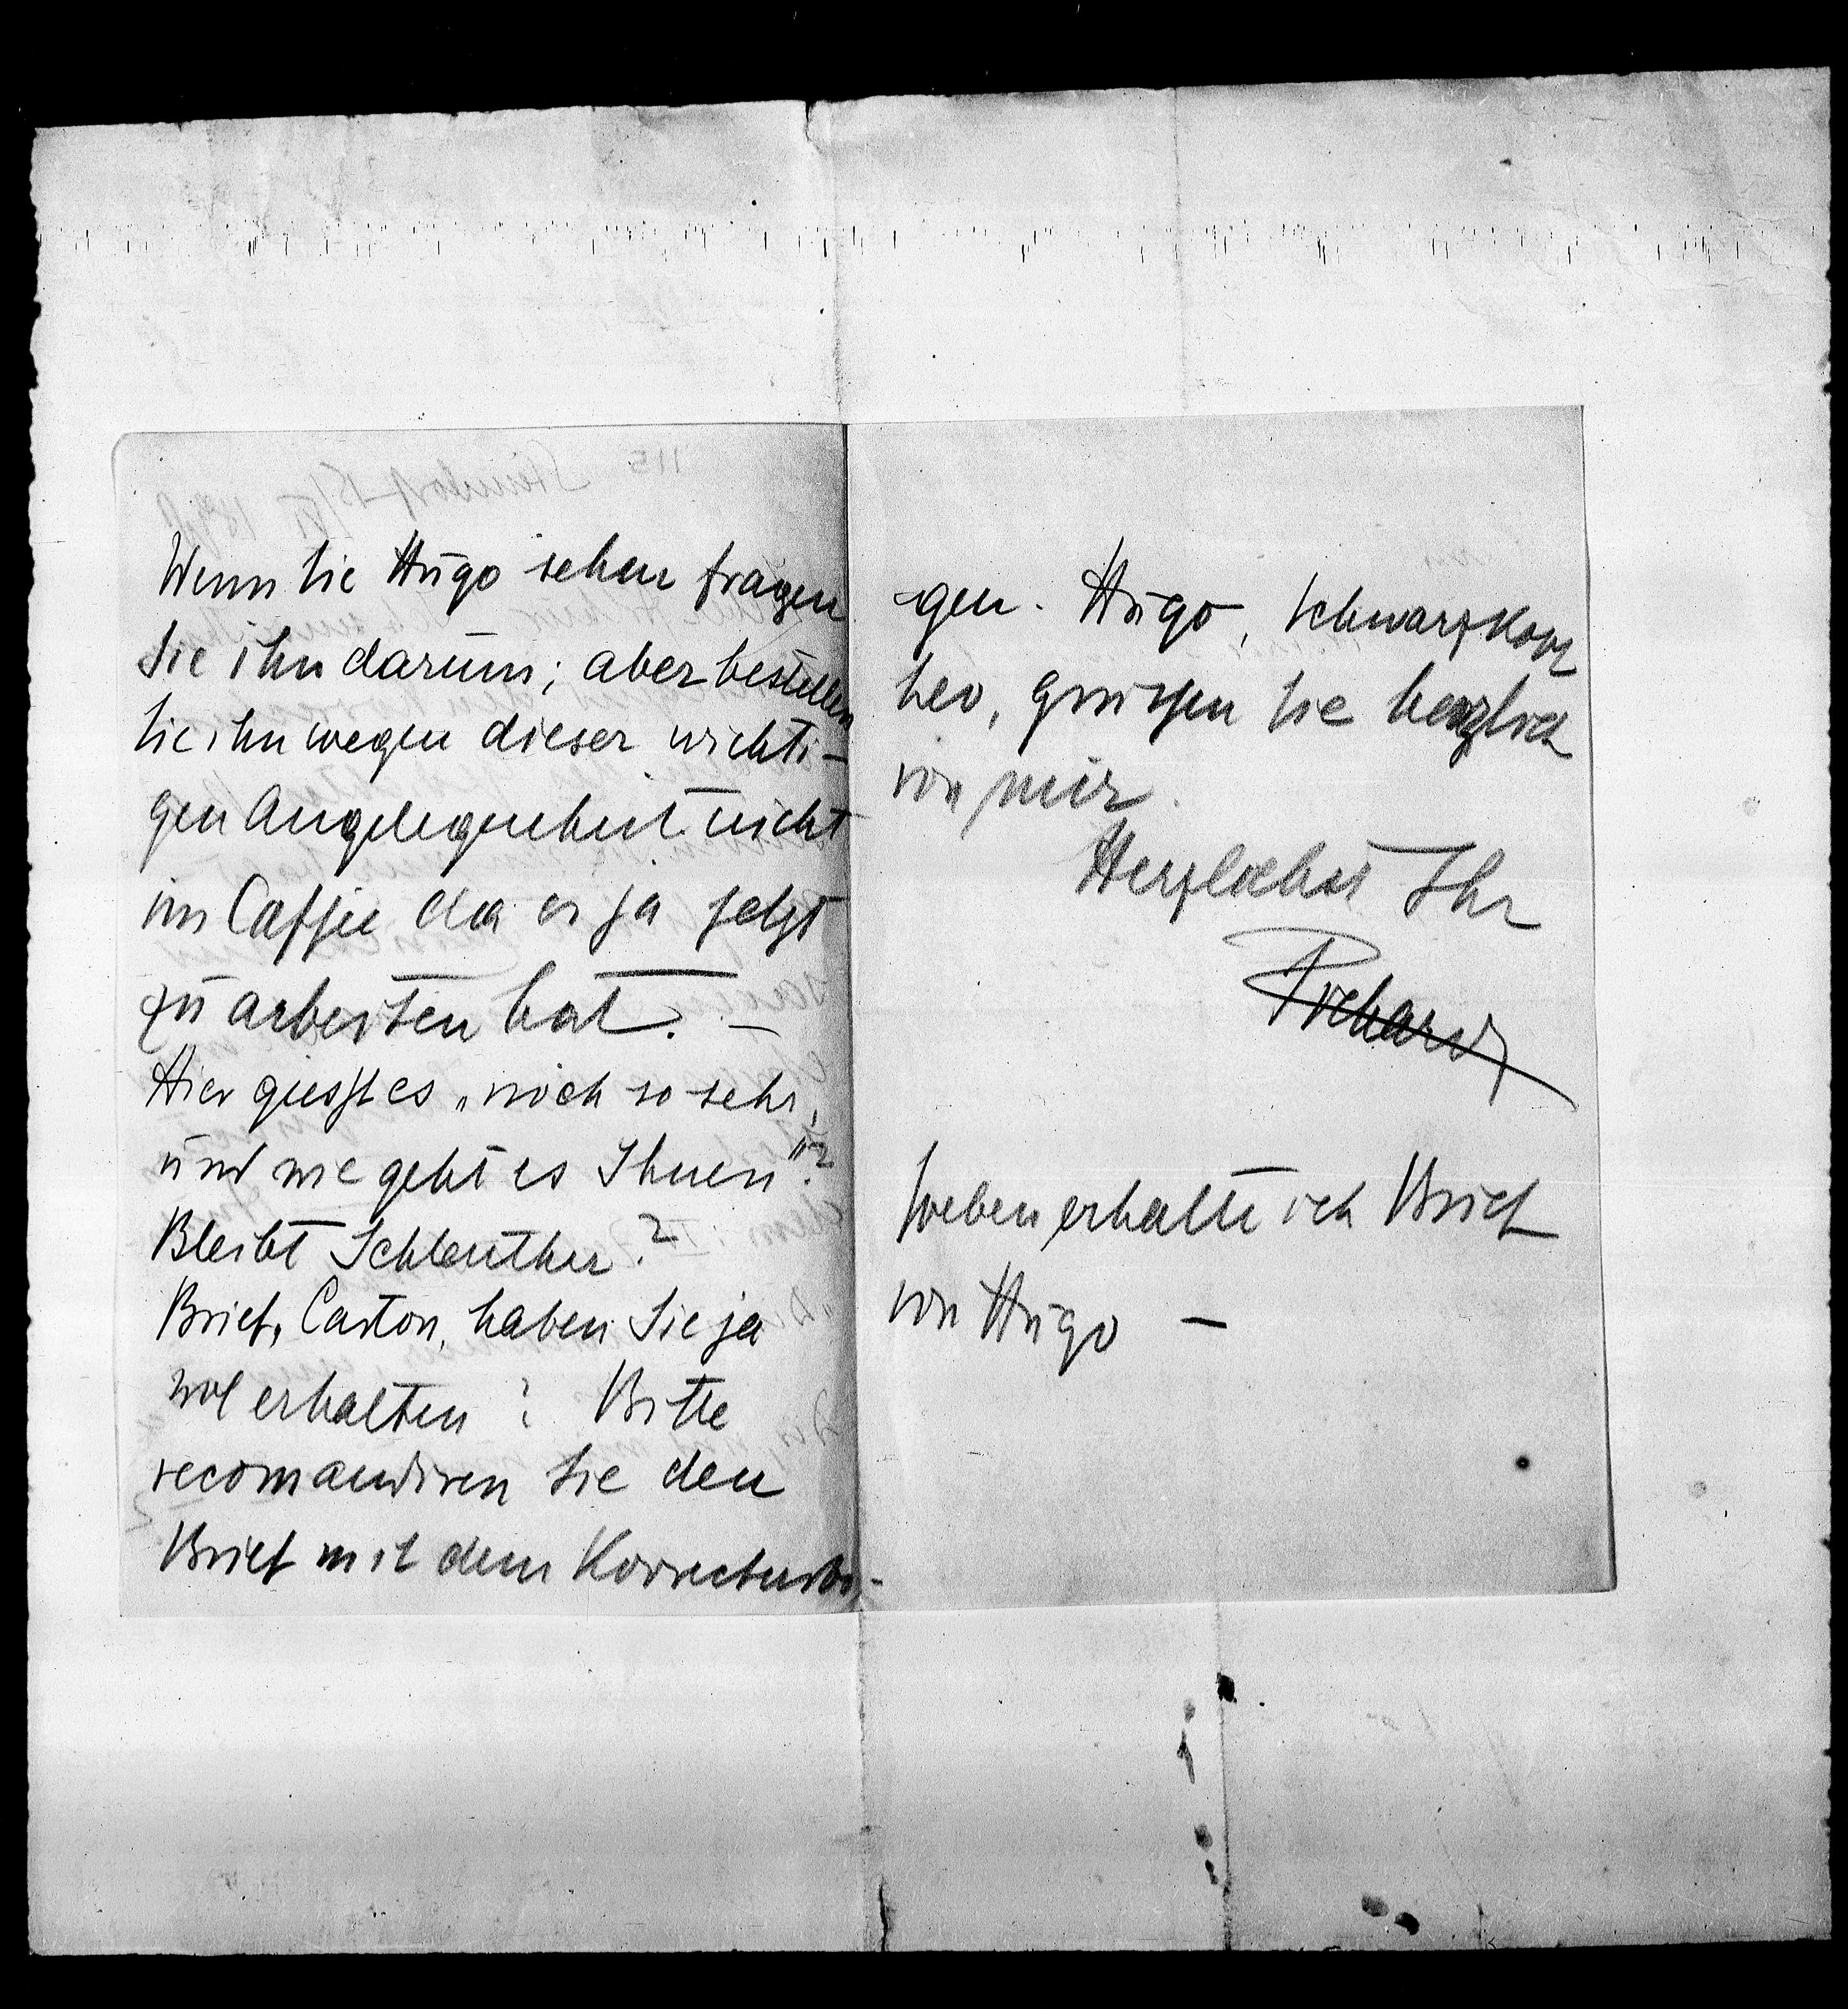 Wenn Sie Hugo sehen fragen
Sie ihn darum; aber bestellen
Sie ihn wegen dieser wichti-
gen Angelegenheit nicht
ins Caffee da er ja jetzt
zu arbeiten hat. —
Hier giesst es „noch so sehr,
und wie geht es Ihnen"?
Bleibt Schlenther?
Brief, Carton, haben Sie ja
wol erhalten? Bitte
recomandiren Sie den
Brief mit dem Correcturbo-
gen. Hugo, Schwarzkopf
Leo, grüssen Sie herzlich
von mir.
Herzlichst Ihr
Richard
Soeben erhalte ich Brief
von Hugo —